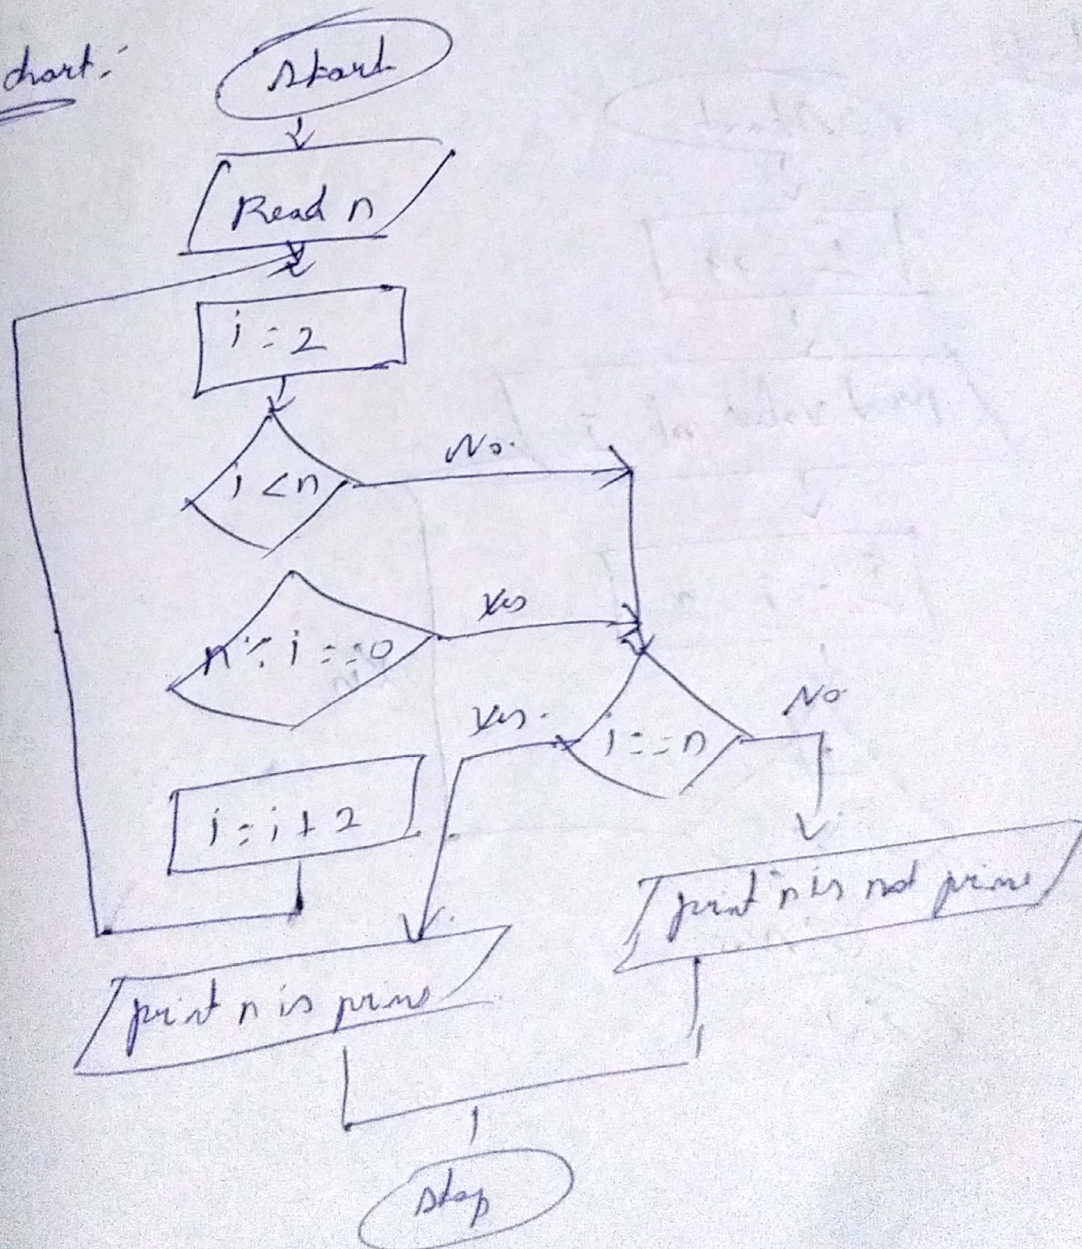 chart:
Start
Read n
i = 2
i < n
No.
n % i == 0
Yes
i == n
Yes.
No
i = i + 2
print n is not prime
print n is prime
Stop